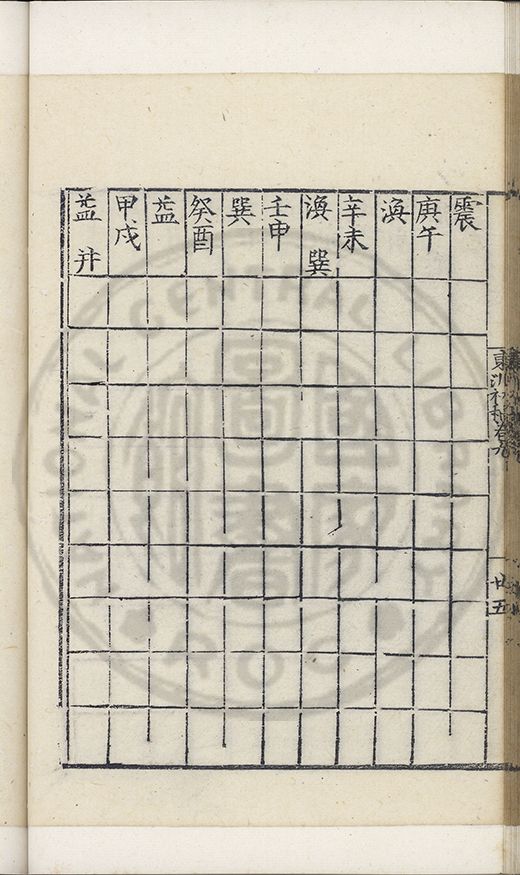 震
庚午
渙
辛未
渙 巽
壬申
巽
癸酉
益
甲戌
益 井
東洲初稿卷九
廿五